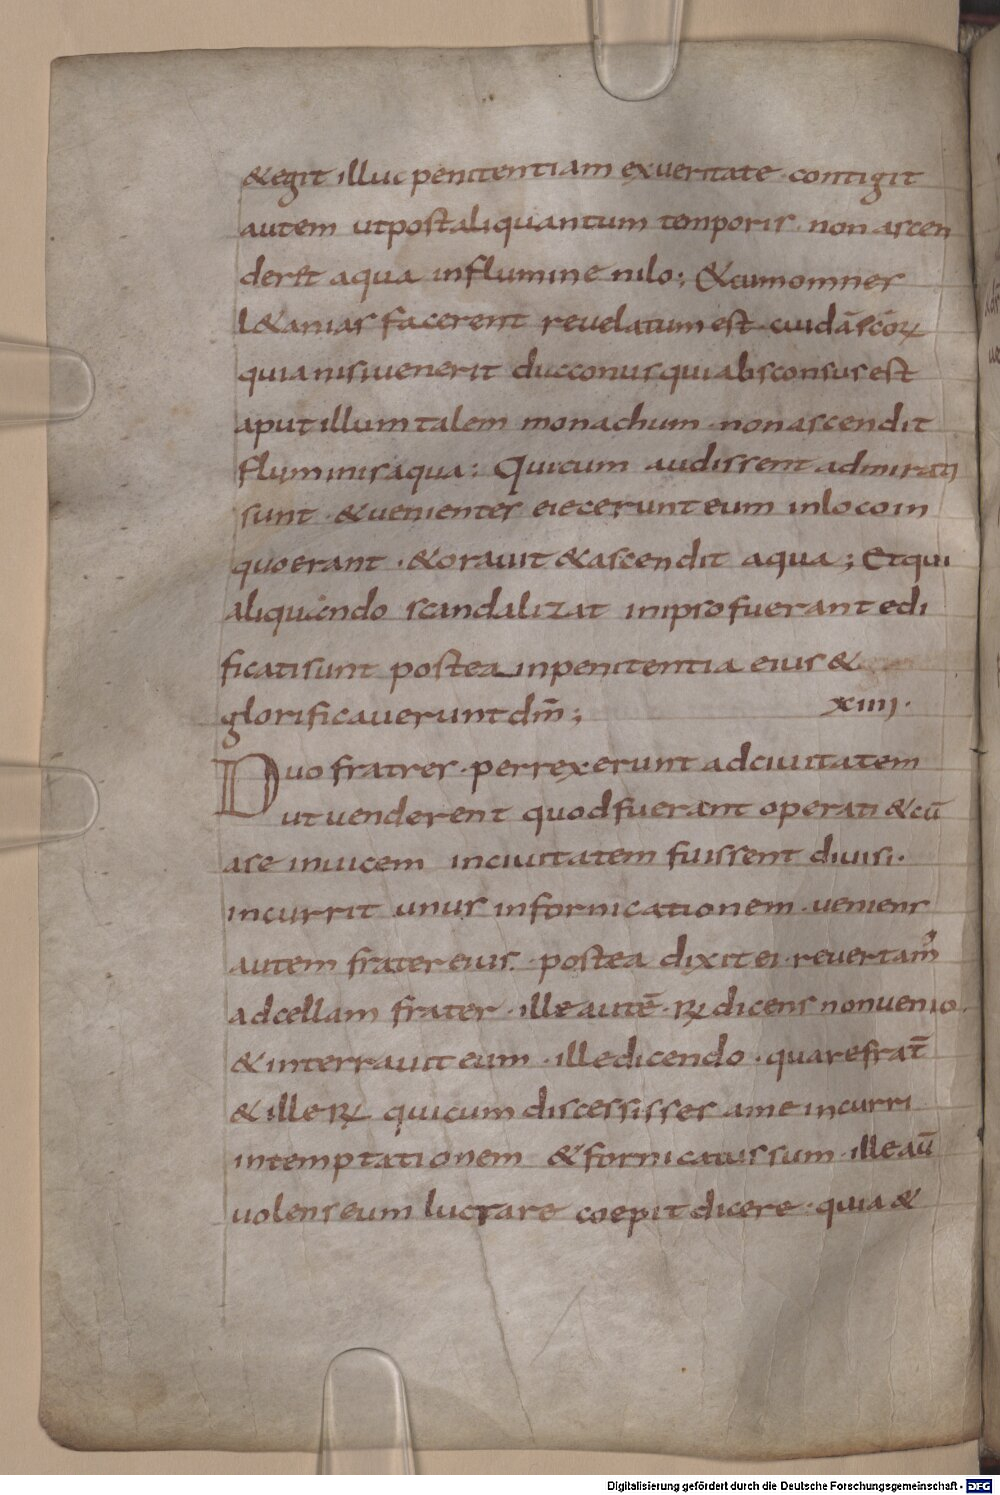 &egit illuc penitentiam exueritate · contigit
autem utpostaliquantum temporis · non ascen
deret aqua influmine nilo ; &cumomnes
l&anias facerent reuelatum est · cuidā scōꝝ
quia nisi uenerit ducconus qui absconsus est
aput illum talem monachum · non ascendit
fluminis aqua : Qui cum audissent admirati
sunt · & uenientes eiecerunt eum inloco in
quo erant · & orauit & ascendit aqua ; Et qui
aliquando scandalizat inipso fuerant edi
ficati sunt postea inpenitentia eius &
glorificauerunt dm̄ ;
xiiii ·
Duo fratres · perrexerunt adciuitatem
ut uenderent quod fuerant operati & cū
ase inuicem inciuitatem fuissent diuisi ·
incurrit unus infornicationem · ueniens
autem frater eius · postea dixit ei · reuertam᷒
adcellam frater · ille autē · ℞ dicens non uenio ·
& interrauit eum · ille dicendo · quare frat̄
& ille ℞ qui cum discessisses ame incurri
intemptationem & fornicatus sum · ille aū
uolens eum lucrare coepit dicere · quia &
Digitalisierung gefördert durch die Deutsche Forschungsgemeinschaft - DFG